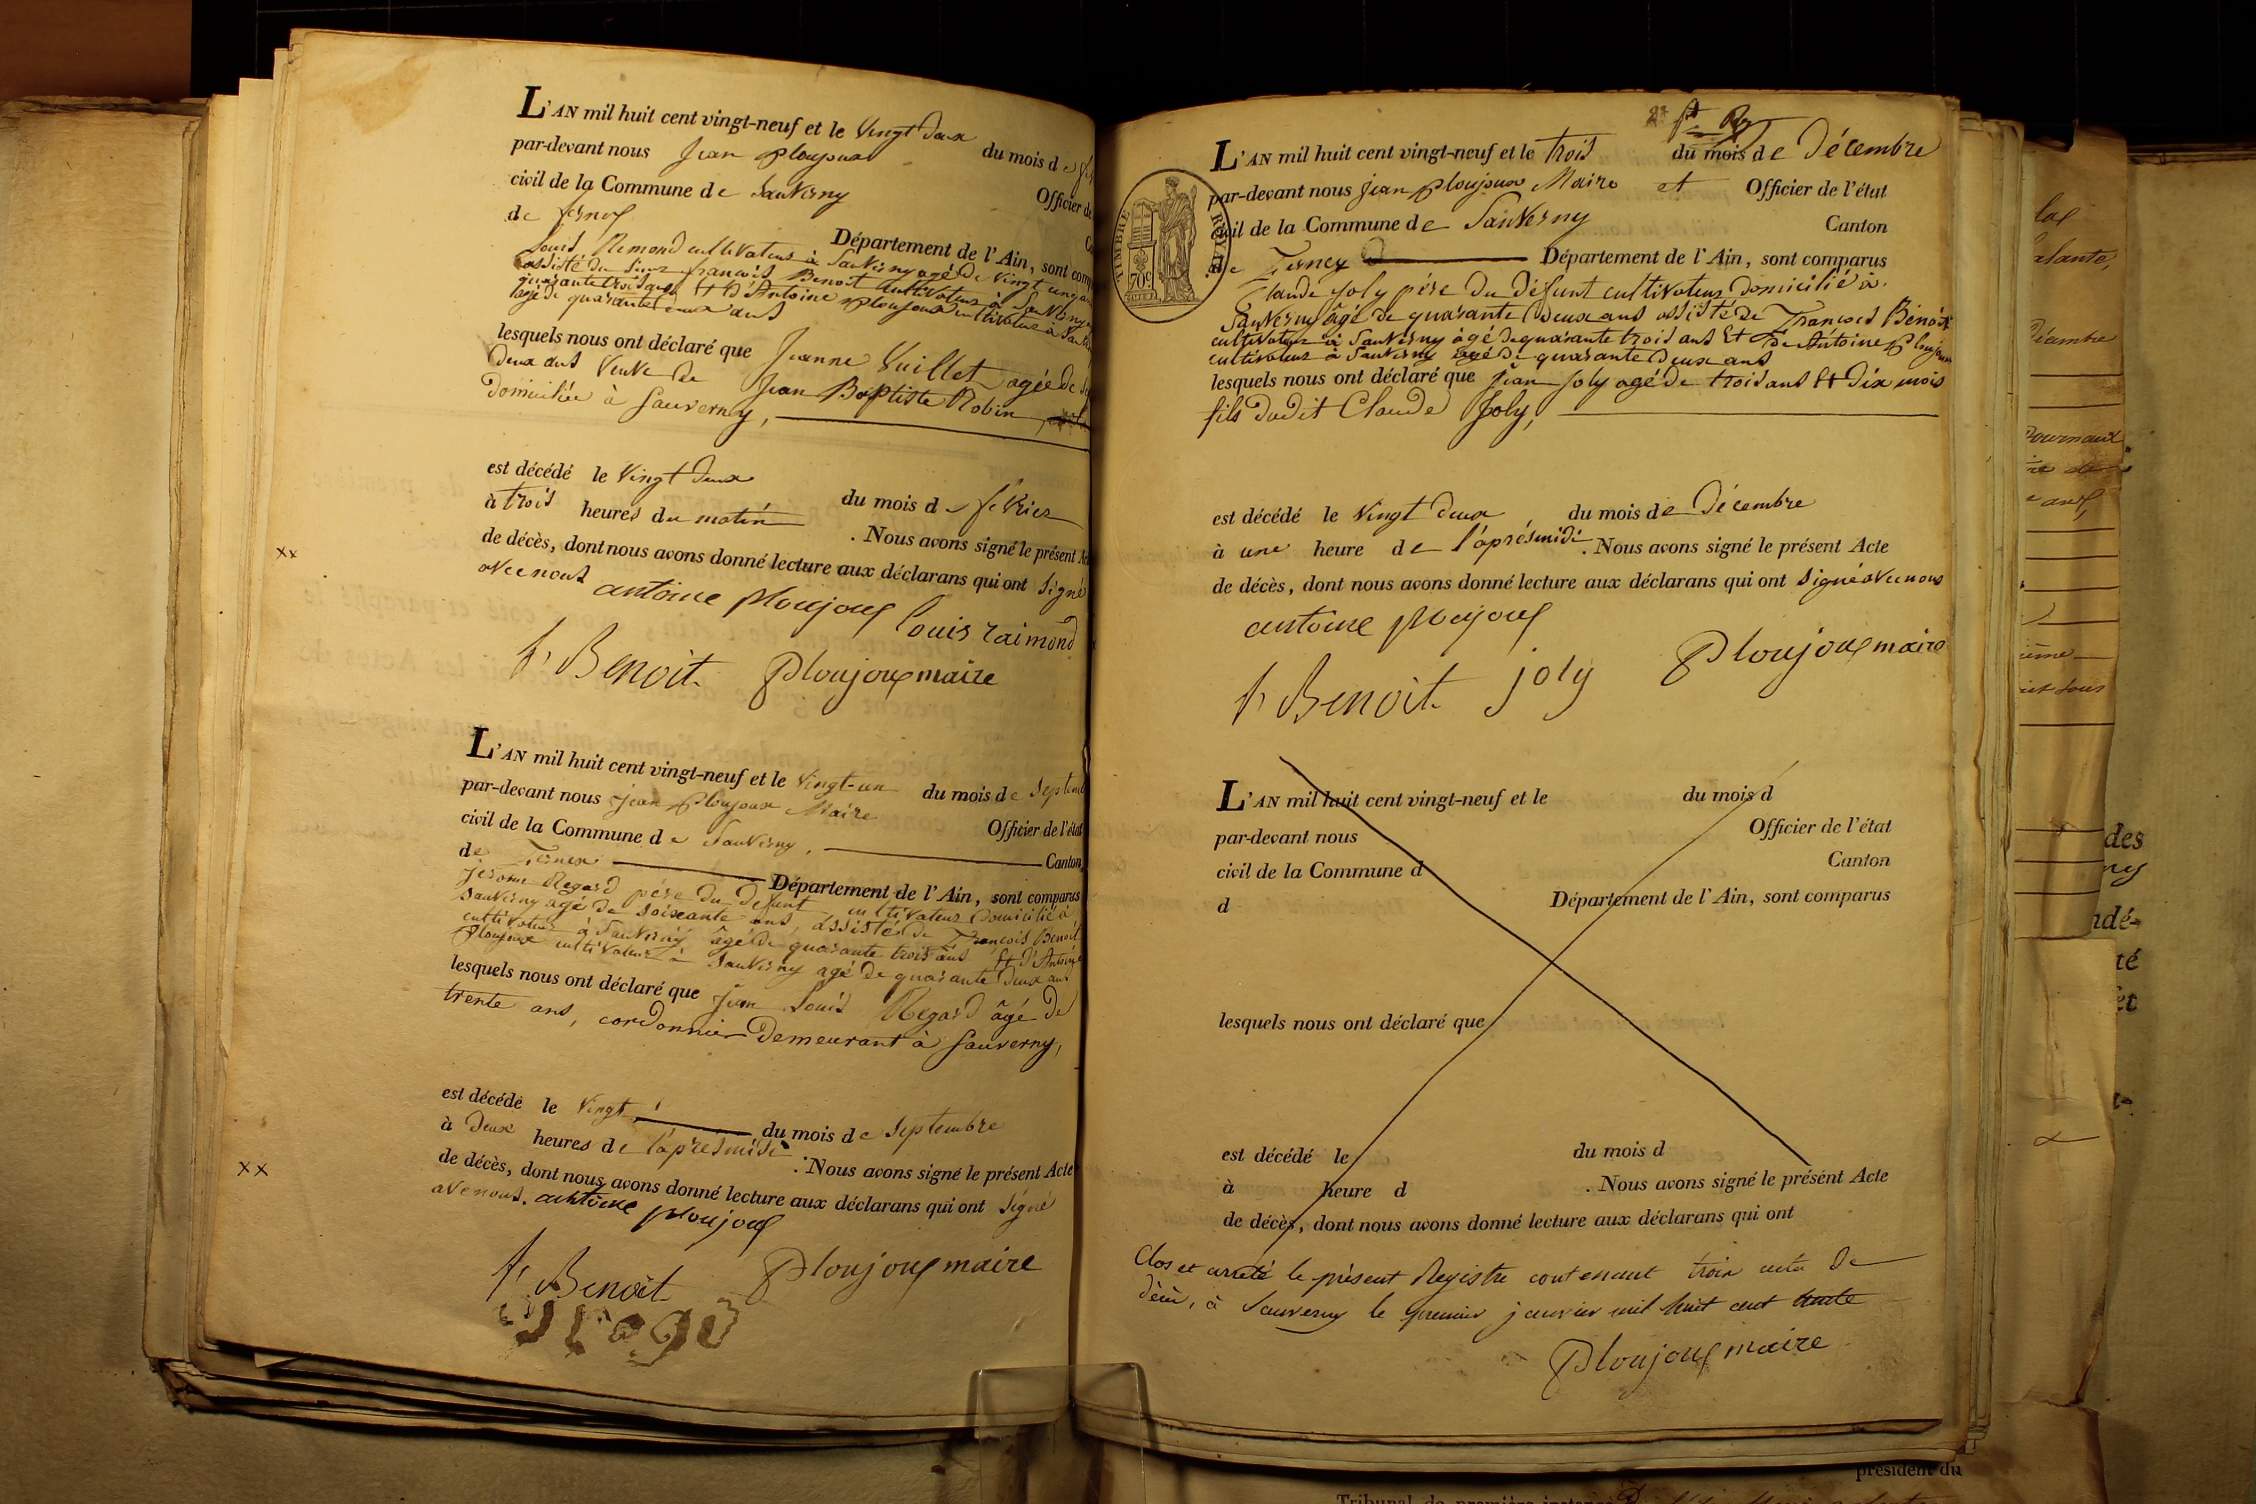 L'AN mil huit cent vingt-neuf et le Vingt Deux du mois de
par-devant nous Jean Ploujoux Officier de
civil de la Commune de Sauverny
de Fernex Département de l'Ain, sont comp
Louis Remond cultivateur à Sauverny agé de Vingt un ans
assisté du Sieur françois Benoit cultivateur à Sauverny
quarante trois ans Et D'Antoine Ploujoux cultivateur à Sau
agé de quarante deux ans
lesquels nous ont déclaré que Jeanne Vuillet agée de
Deux ans Veuve de Jean Baptiste Robin
Domiciliée à Sauverny,
est décédé le Vingt deux du mois de fevrier
à trois heures du matin . Nous avons signé le présent Ac
de décès, dont nous avons donné lecture aux déclarans qui ont Signé
avec nous antoine ploujoux Louis raimond
f, Benoit. Ploujoux maire
L'AN mil huit cent vingt-neuf et le Vingt-un du mois de Septemb
par-devant nous jean Ploujoux Maire Officier de l'état
civil de la Commune de Sauverny. Canton,
de Fernex Département de l'Ain, sont comparus
jerome Regard père du Défunt cultivateur Domicilié à
Sauverny agé de soixante ans, assisté de François Benoit
cultivateur à Sauverny âgé de quarante trois ans Et D'Antoine
Ploujoux cultivateur à Sauverny agé de quarante Deux ans
lesquels nous ont déclaré que jean Louis Regard âgé de
trente ans, cordonnier Demeurant à Sauverny,
est décédé le Vingt du mois de Septembre
à Deux heures de l'aprèsmidi . Nous avons signé le présent Acte
de décès, dont nous avons donné lecture aux déclarans qui ont Signé
avenous. antoine ploujoux
f, Benoit Ploujoux maire
xx
xx
L'AN mil huit cent vingt-neuf et le trois du mois de Décembre
par-devant nous jean Ploujoux Maire et Officier de l'état
civil de la Commune de Sauverny Canton
de Ferney Département de l'Ain, sont comparus
TIMBRE ROYAL
70c
Claude Joly père Du Défunt cultivateur Domicilié à
Sauverny âgé de quarante Deux ans assisté de François Benoit
cultivateur à Sauverny âgé de quarante trois ans Et De Antoine Ploujoux
cultivateur à Sauverny agé de quarante Deux ans
lesquels nous ont déclaré que jean Joly agé de trois ans Et Dix mois
fils dudit Claude Joly,
est décédé le Vingt deux du mois de Décembre
à une heure de l'aprésmidi . Nous avons signé le présent Acte
de décès, dont nous avons donné lecture aux déclarans qui ont Signé avec nous
antoine ploujoux
f, Benoit. joly Ploujoux maire
L'AN mil huit cent vingt-neuf et le du mois d
par-devant nous Officier de l'état
civil de la Commune d Canton
d Département de l'Ain, sont comparus
lesquels nous ont déclaré que
est décédé le du mois d
à heure d . Nous avons signé le présent Acte
de décès, dont nous avons donné lecture aux déclarans qui ont
Clos et arreté le présent Registre contenant trois actes de
décès, à Sauverny le premier janvier mil huit cent trente
Ploujoux maire
Décembre
des
ndé-
té
président du
Tribunal de première instance